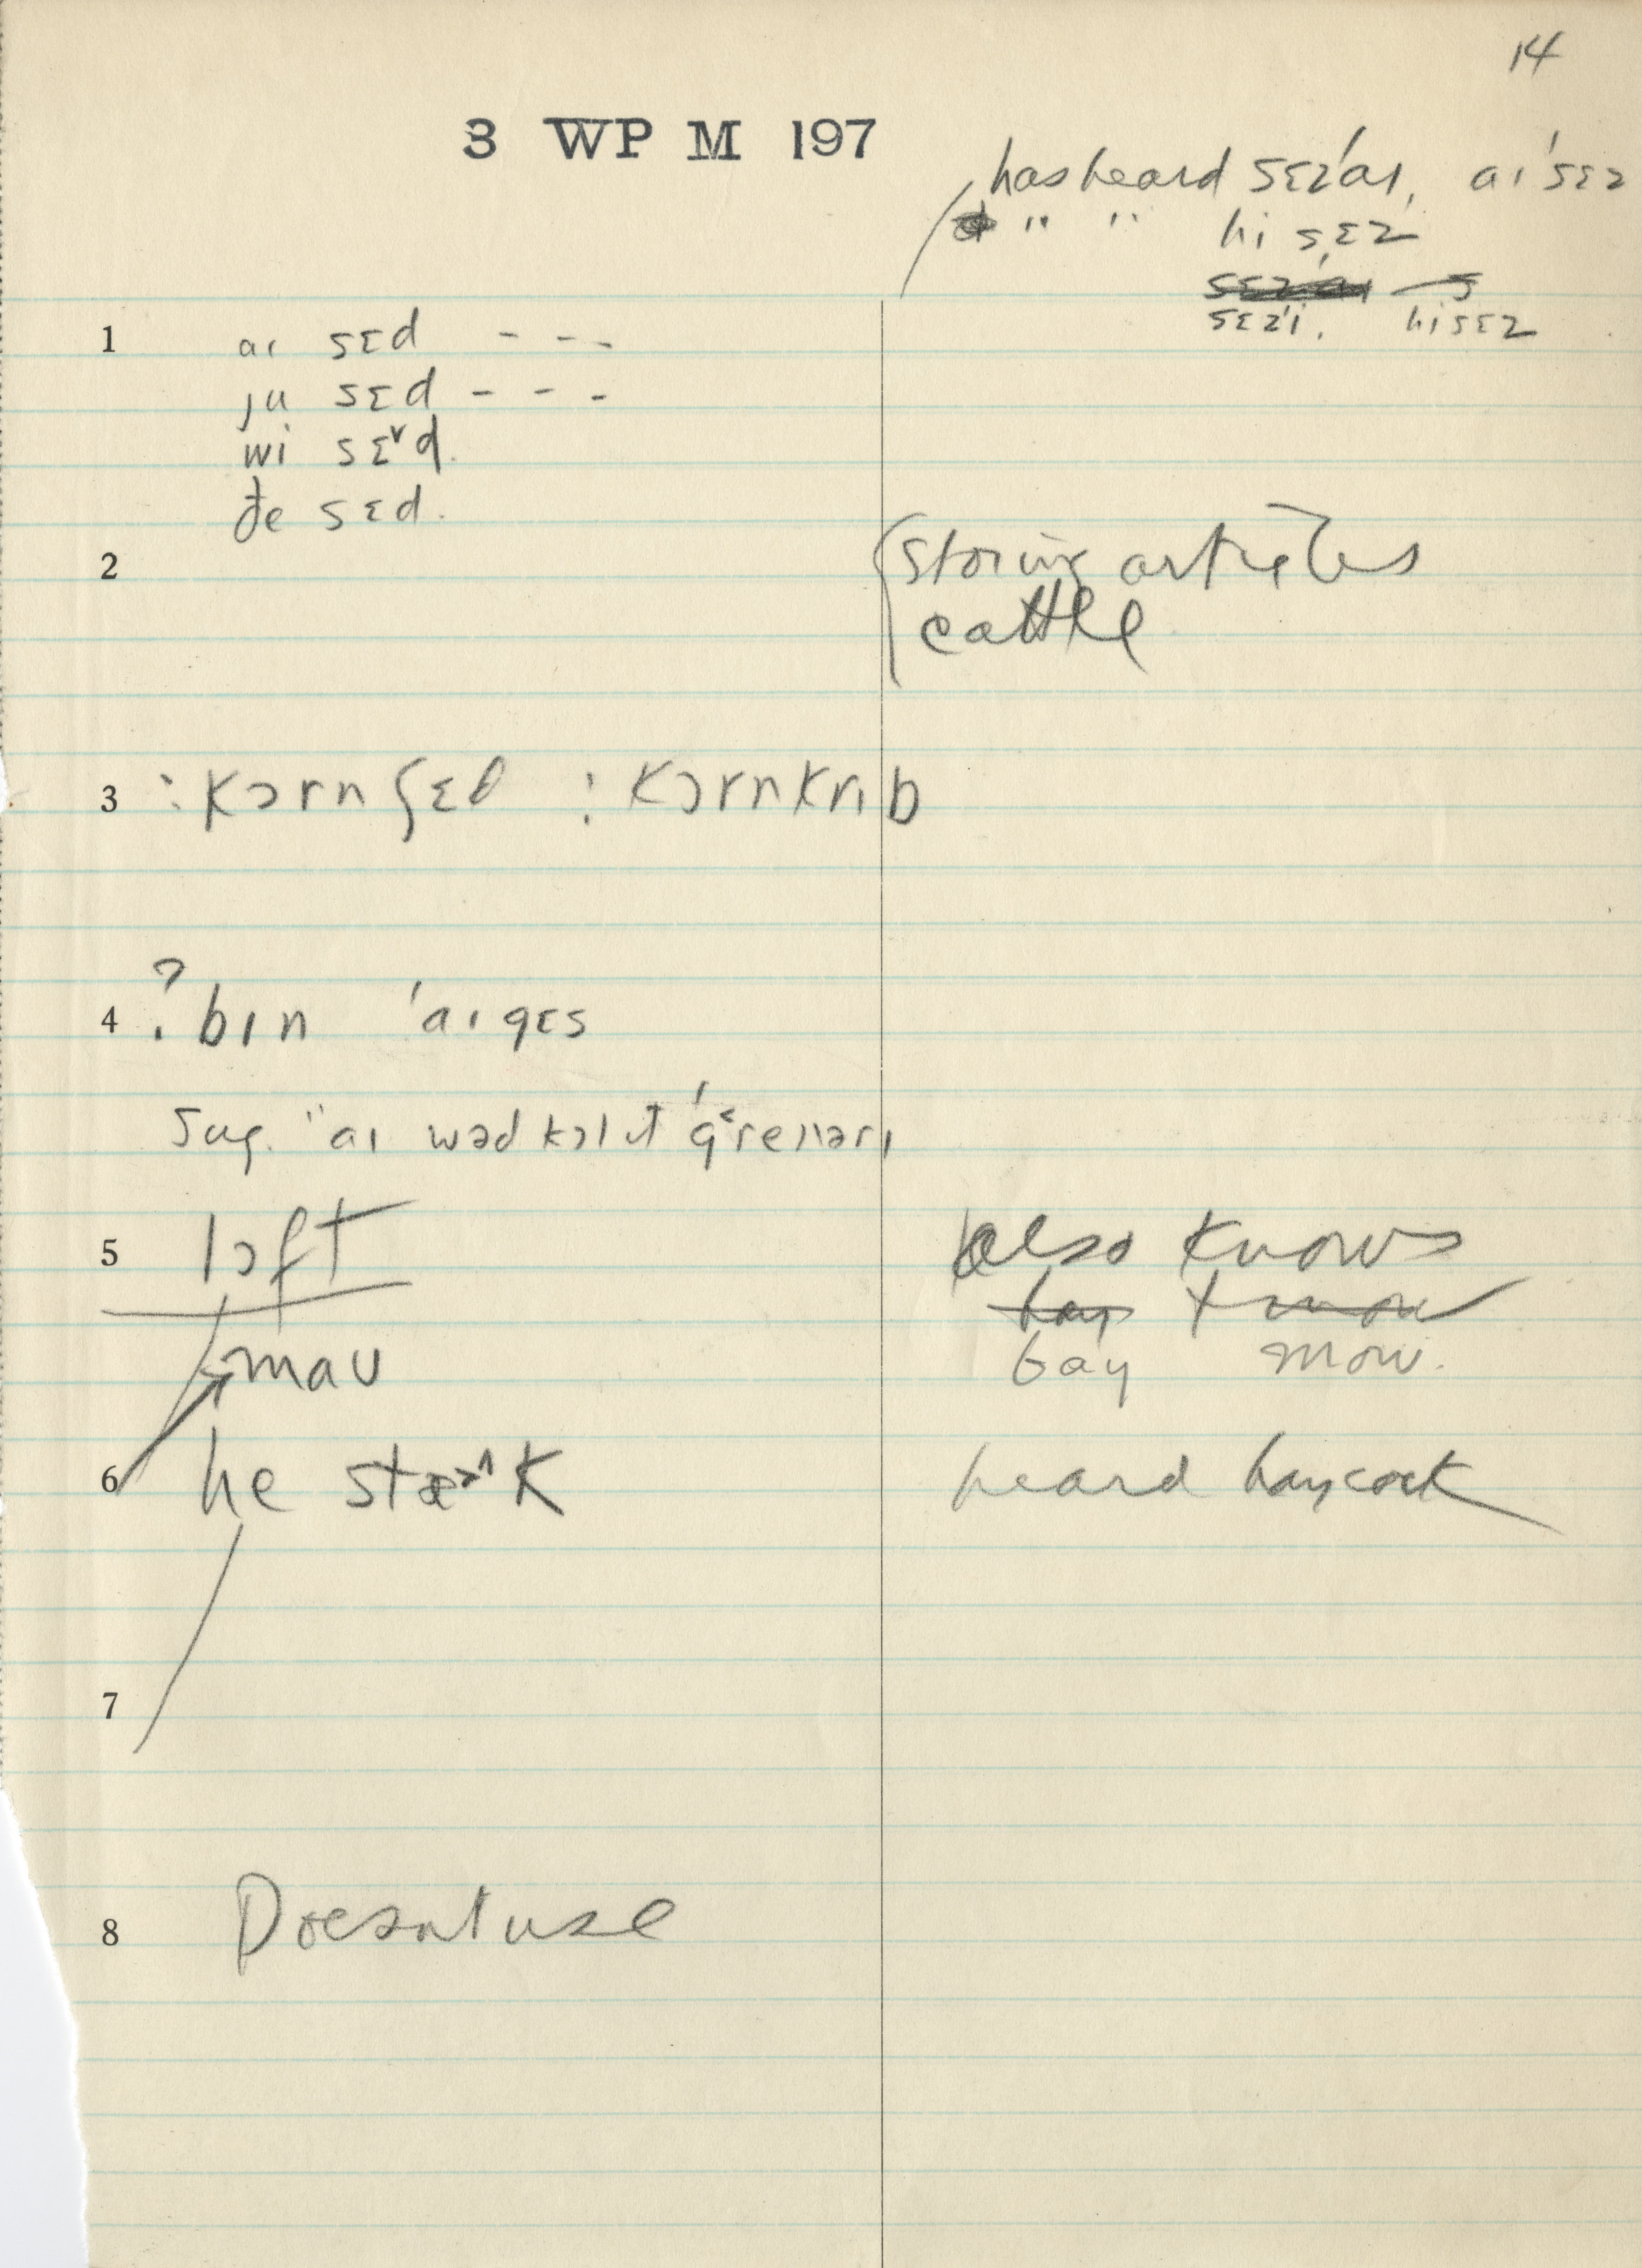 14
3 WP M 197
has heard sɛz'aɪ, aɪ'sɛz
" " hi sɛz
sɛz'i, hi sɛz
1 aɪ sɛd - - -
ju sɛd - - -
wi sɛ˅d.
ðe sɛd.
2 storing articles
cattle
3 :kɔrn ʃɛd :kɔrnkrɪb
4 ? bɪn 'aɪ gɛs
Sug. "aɪ wəd kɔl ɪt
5 lɔft also knows
hay mow
maʊ bay mow.
6 he stæ˃˄k heard haycock
7
8 Doesnt use